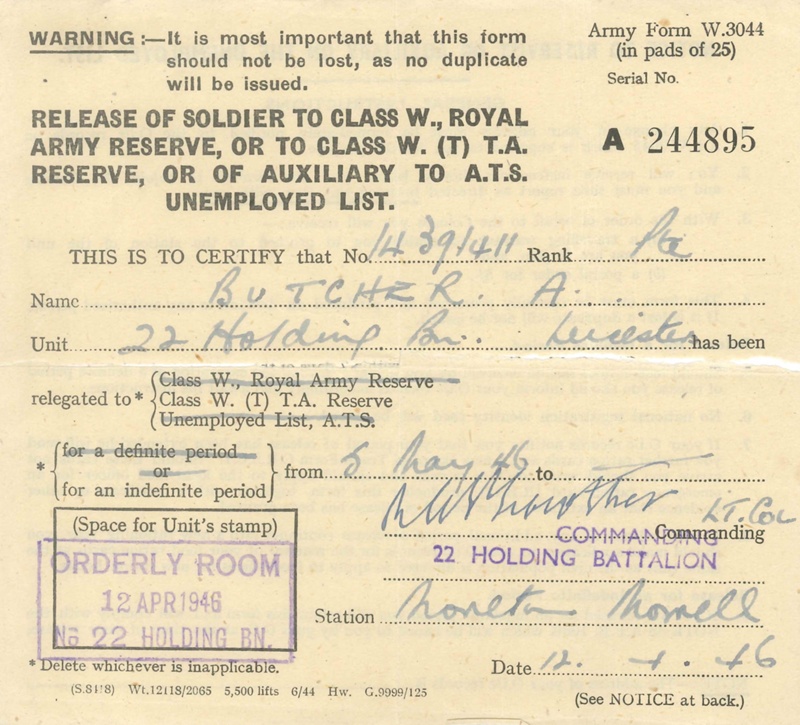 WARNING :—It is most important that this form
should not be lost, as no duplicate
will be issued.
Army Form W.3044
(in pads of 25)
Serial No.
A 244895
RELEASE OF SOLDIER TO CLASS W., ROYAL
ARMY RESERVE, OR TO CLASS W. (T) T.A.
RESERVE, OR OF AUXILIARY TO A.T.S.
UNEMPLOYED LIST.
THIS IS TO CERTIFY that No. 14391411 Rank Pte
Name BUTCHER. A.
Unit 22 Holding Bn. Leicester has been
relegated to*
Class W., Royal Army Reserve
Class W. (T) T.A. Reserve
Unemployed List, A.T.S.
* for a definite period
or
for an indefinite period
from 5 May 46 to —
Lt. Col
Commanding
COMMANDING
22 HOLDING BATTALION
(Space for Unit's stamp)
ORDERLY ROOM
12 APR 1946
No 22 HOLDING BN.
Station Moreton Morrell
* Delete whichever is inapplicable.
Date 12. 4. 46
(S.8118) Wt.12118/2065 5,500 lifts 6/44 Hw. G.9999/125
(See NOTICE at back.)